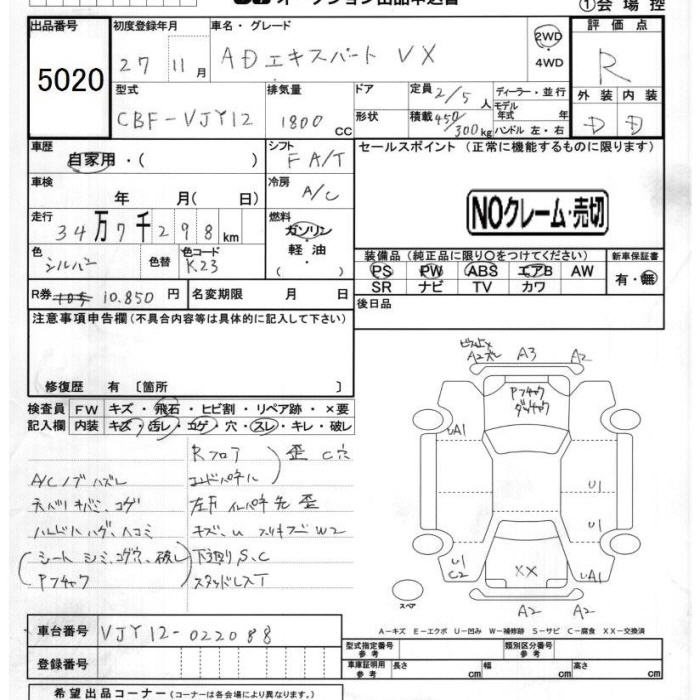 オークション出品申込書
①会場控
出品番号 5020
初度登録年月 27年 11月
車名・グレード ADエキスパート VX
2WD・4WD
評価点 R
外装 D 内装 D
型式 CBF-VJY12
排気量 1800 CC
ドア
形状
定員 2/5 人
積載 450/300kg
ディーラー・並行
モデル年式 年
ハンドル 左・右
車歴 自家用・( )
シフト F A/T
セールスポイント (正常に機能するものに限ります)
車検 年 月( 日)
冷房 A/C
NOクレーム・売切
走行 34万7千298km
燃料 ガソリン 軽油 ( )
色 シルバー 色替 色コード K23
装備品 (純正品に限り○をつけてください)
新車保証書
PS PW ABS エアB AW
有・無
SR ナビ TV カワ
R券 10,850 円 名変期限 月 日
後日品
注意事項申告欄 (不具合内容等は具体的に記入して下さい)
修復歴 有 〔箇所 〕
検査員記入欄
FW キズ・飛石・ヒビ割・リペア跡・×要
内装 キズ・汚レ・コゲ・穴・スレ・キレ・破レ
Rフロア 歪 C穴
A/Cノブハズレ エンドパネル
天バリキバミ、コゲ
ハンドルハゲ、ヘコミ キズ、U W2
シート シミ、コゲ穴、破レ 下廻りS、C
Pフチャク スタッドレスT
A2 A3 A2
Pフチャク
UA1
U1
U1
U1
C2
XX
UA1
A2 A2
スペア
A-キズ E-エクボ U-凹み W-補修跡 S-サビ C-腐食 XX-交換済
車台番号 VJY12-022088
登録番号
型式指定番号 参考
類別区分番号 参考
車庫証明用 参考 長さ cm 幅 cm 高さ cm
希望出品コーナー (コーナーは各会場により異なります。)